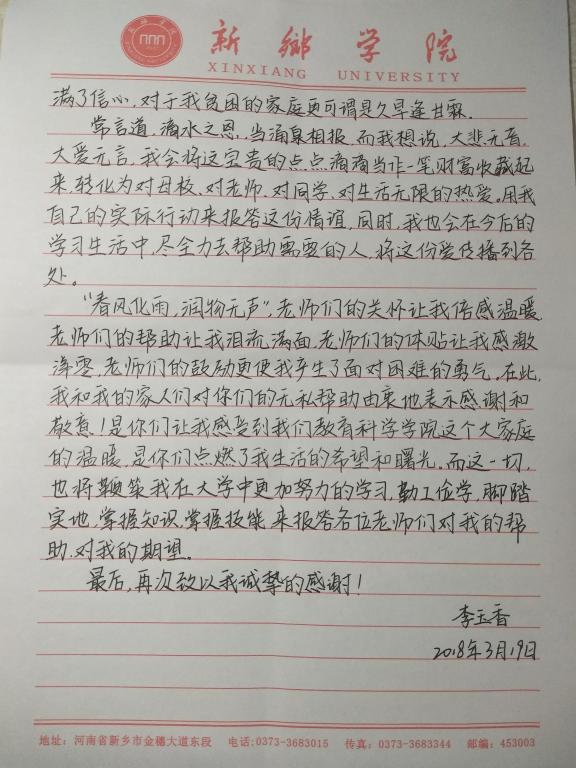 新乡学院
XINXIANG UNIVERSITY
满了信心，对于我贫困的家庭更可谓是久旱逢甘霖.
常言道，滴水之恩，当涌泉相报，而我想说，大悲无音，
大爱无言，我会将这宝贵的点点滴滴当作一笔财富收藏起
来，转化为对母校、对老师、对同学、对生活无限的热爱。用我
自己的实际行动来报答这份情谊，同时，我也会在今后的
学习生活中，尽全力去帮助需要的人，将这份爱传播到各
处。
“春风化雨，润物无声”，老师们的关怀让我倍感温暖，
老师们的帮助让我泪流满面，老师们的体贴让我感激
涕零，老师们的鼓励更使我产生了面对困难的勇气。在此，
我和我的家人们对你们的无私帮助由衷地表示感谢和
敬意！是你们让我感受到我们教育科学学院这个大家庭
的温暖，是你们点燃了我生活的希望和曙光。而这一切，
也将鞭策我在大学中更加努力的学习，勤工俭学，脚踏
实地，掌握知识，掌握技能，来报答各位老师们对我的帮
助、对我的期望。
最后，再次致以我诚挚的感谢！
李玉香
2018年3月19日
地址：河南省新乡市金穗大道东段 电话:0373-3683015 传真：0373-3683344 邮编：453003